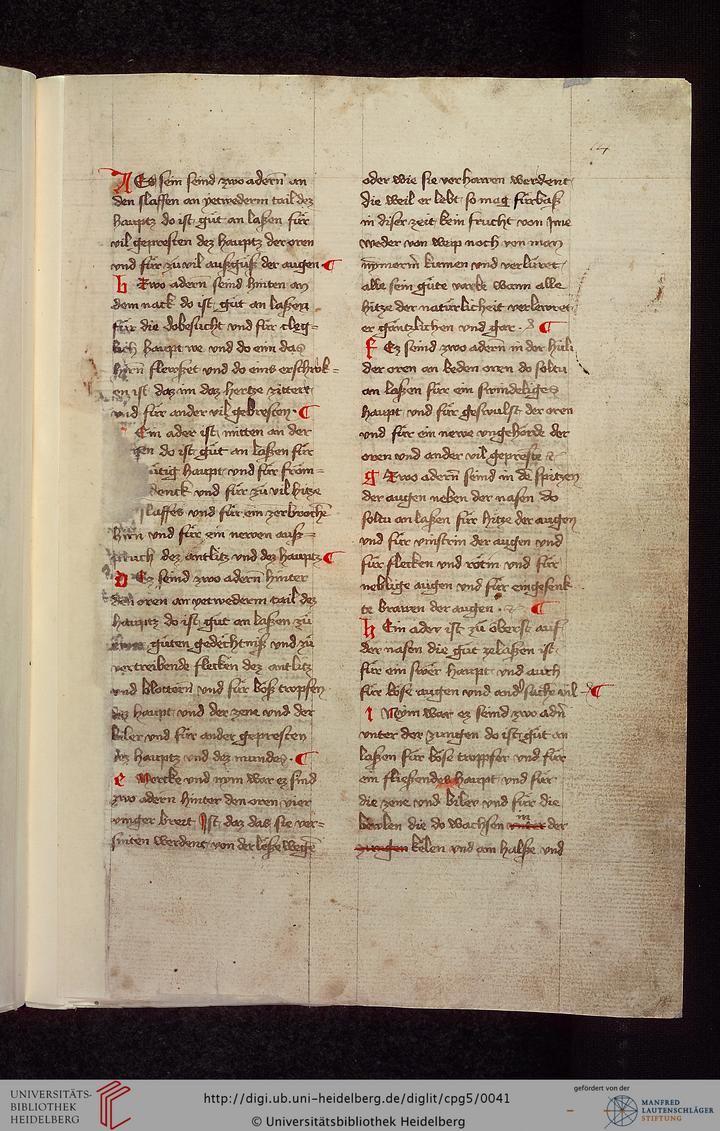 14
A Es sein seind zwo adern an
den slaffen an yetwederm tail dez
hauptz do ist gůt an laßen für
vil gepresten dez hauptz der oren
und für zů vil außguß der augen ¶
b Zwo adern seind hinten an
dem nack do ist gůt an laßen
für die dobesucht und für cleg=
lich haupt we und do einn das
hirn flewsset und do eins erschrok=
en ist daz im daz hertze zittert
und für ander vil gebresten · ¶
Ein ader ist mitten an der
do ist gůt an laßen für
haupt und für
denck und für zů vil hitze
slaffes und für ein zerbroche
hirn und für ein newen auß=
pruch dez antlitz und dez hauptz ¶
D Ez seind zwo adern hinter
den oren an yetwederm tail dez
hauptz do ist gůt an laßen zů
gůten gedechtniß und zů
vertreibende flecken dez antlitz
und blottern und für böß tropfen
dez haupt und der zene und der
biler und für ander gepresten
dez hauptz und dez mundes · ¶
e Mercke und nym war ez sind
zwo adern hinter den oren vier
vinger breit Ist daz das sie ver=
sniten werdent von der läße wegē
oder wie sie verhawen werdent
die weil er lebt so mag fürbaß
in diser zeit kein frucht von Ime
weder von weip noch von man
nymerm kumen und verlüret
alle sein gůte varbe wann alle
hitze der natürlicheit verlewret
er gäntzlichen und gar · ¶
f Ez seind zwo adern in der hüli
der oren an beden oren do soltu
an laßen für ein swindeliges
haupt und für geswulst der oren
und für ein newe ungehörde der
oren und ander vil gepreste
g Zwo adern seind in dē spitzen
der augen neben der nasen do
soltu an laßen für hitze der augen
und für vinstrin der augen und
für flecken und rötin und für
neblige augen und für eingesenk
te brawen der augen · ¶
h Ein ader ist zů öberst auf
der nasen die gůt zelaßen ist
für ein swer haupt und auch
für böse augen und and' suchē vil ¶
i Nym war ez seind zwo adn̄
unter der zungen do ist gůt an
laßen für böse tropffer und für
ein fließendes haupt und für
die zene und biler und für die
die do wachsen unter in der
zungen kelen und am halße und
UNIVERSITÄTS-
BIBLIOTHEK
HEIDELBERG
http://digi.ub.uni-heidelberg.de/diglit/cpg5/0041
© Universitätsbibliothek Heidelberg
gefördert von der
MANFRED
LAUTENSCHLÄGER
STIFTUNG